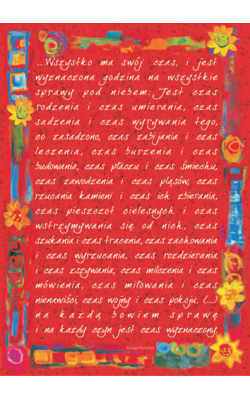 ...Wszystko ma swój czas, i jest
wyznaczona godzina na wszystkie
sprawy pod niebem: Jest czas
rodzenia i czas umierania, czas
sadzenia i czas wyrywania tego,
co zasadzono, czas zabijania i czas
leczenia, czas burzenia i czas
budowania, czas płaczu i czas śmiechu,
czas zawodzenia i czas pląsów, czas
rzucania kamieni i czas ich zbierania,
czas pieszczot cielesnych i czas
wstrzymywania się od nich, czas
szukania i czas tracenia, czas zachowania
i czas wyrzucania, czas rozdzierania
i czas zszywania, czas milczenia i czas
mówienia, czas miłowania i czas
nienawiści, czas wojny i czas pokoju. (...)
na każdą bowiem sprawę
i na każdy czyn jest czas wyznaczony.